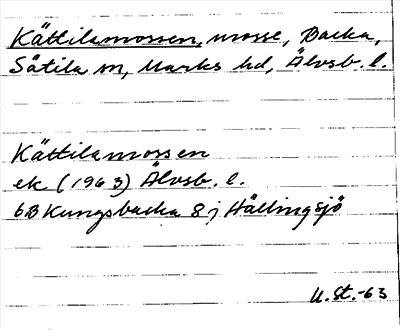 Kättilamossen, mosse, Backa,
Sätila sn, Marks hd, Älvsb. l.
Kättilamossen
ek (1963) Älvsb. l.
6B Kungsbacka 8j Hällingsjö
U. St. -63